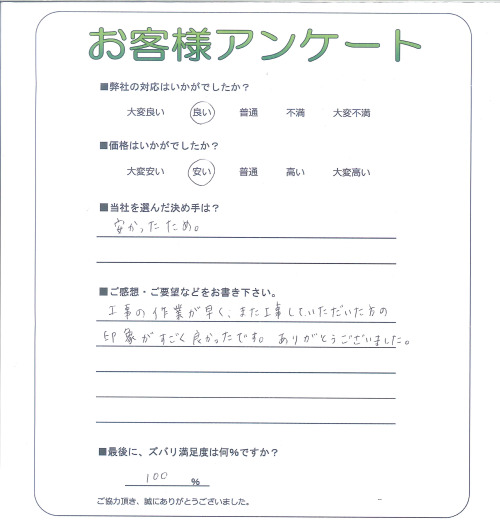 お客様アンケート
■弊社の対応はいかがでしたか？
大変良い 良い 普通 不満 大変不満
■価格はいかがでしたか？
大変安い 安い 普通 高い 大変高い
■当社を選んだ決め手は？
安かったため。
■ご感想・ご要望などをお書き下さい。
工事の作業が早く、また工事していただいた方の
印象がすごく良かったです。ありがとうございました。
■最後に、ズバリ満足度は何%ですか？
100 %
ご協力頂き、誠にありがとうございました。